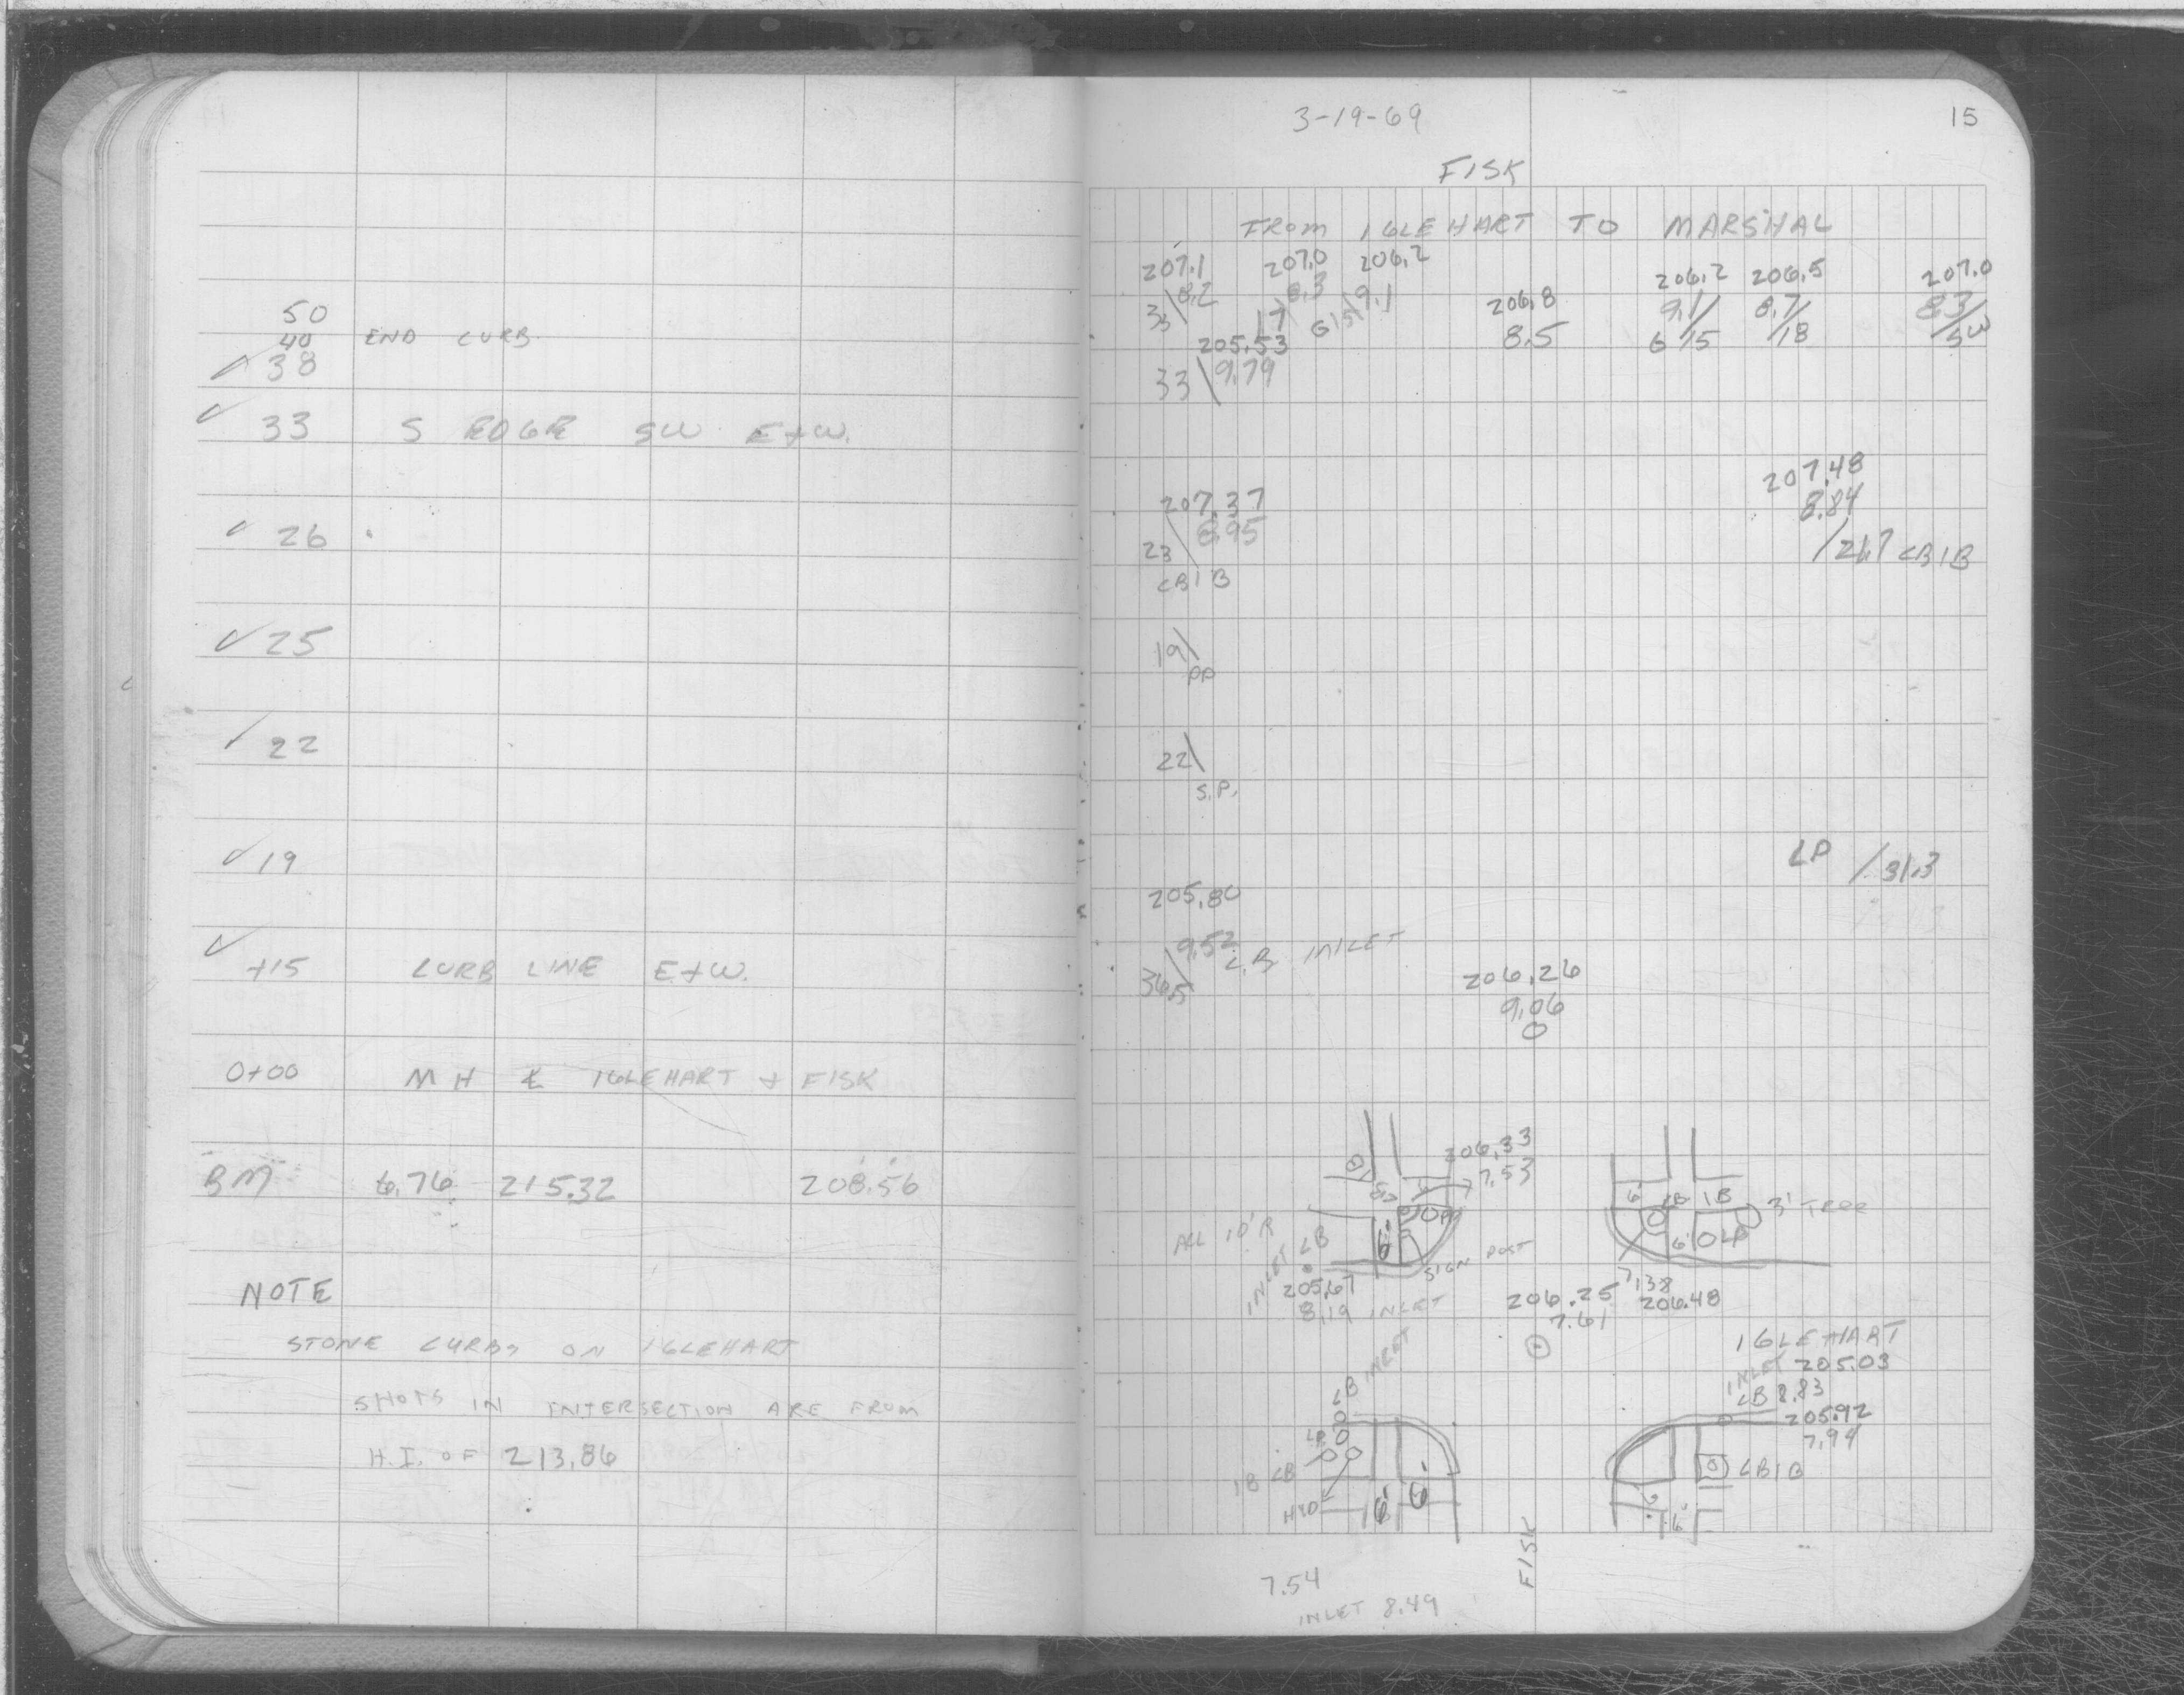 50
40 END CURB
✓ 38
✓ 33 S EDGE SW E+W.
✓ 26
✓ 25
✓ 22
✓ 19
✓ +15 CURB LINE E+W.
0+00 MH ℄ IGLEHART + FISK
BM 6.76 215.32 208.56
NOTE
STONE CURBS ON IGLEHART
SHOTS IN INTERSECTION ARE FROM
H.I. OF 213.86
3-19-69 15
FISK
FROM IGLEHART TO MARSHAL
207.1 207.0 206.2 206.8 206.2 206.5 207.0
8.2 8.3 9.1 8.5 9.1 8.7 8.3
33 17 G 15 G 15 18 SW
205.53
33 9.79
207.37 207.48
8.95 8.84
23 26.7 CB1B
CB1B
19
PP
22
S.P.
LP 31.3
205.80
9.52 C.B INLET
36.5
206.26
9.06
0
206.33
7.53
6' CB 1B 3' TREE
PP
ALL 10'R
6' 6' LP
INLET CB
SIGN POST
205.67
8.19 INLET
206.25 7.38
7.61 206.48
IGLEHART
INLET 205.03
CB 8.83
205.92
7.94
CB INLET
LP
1B CB
CB1B
HYD
6' 6'
6'
FISK
7.54
INLET 8.49